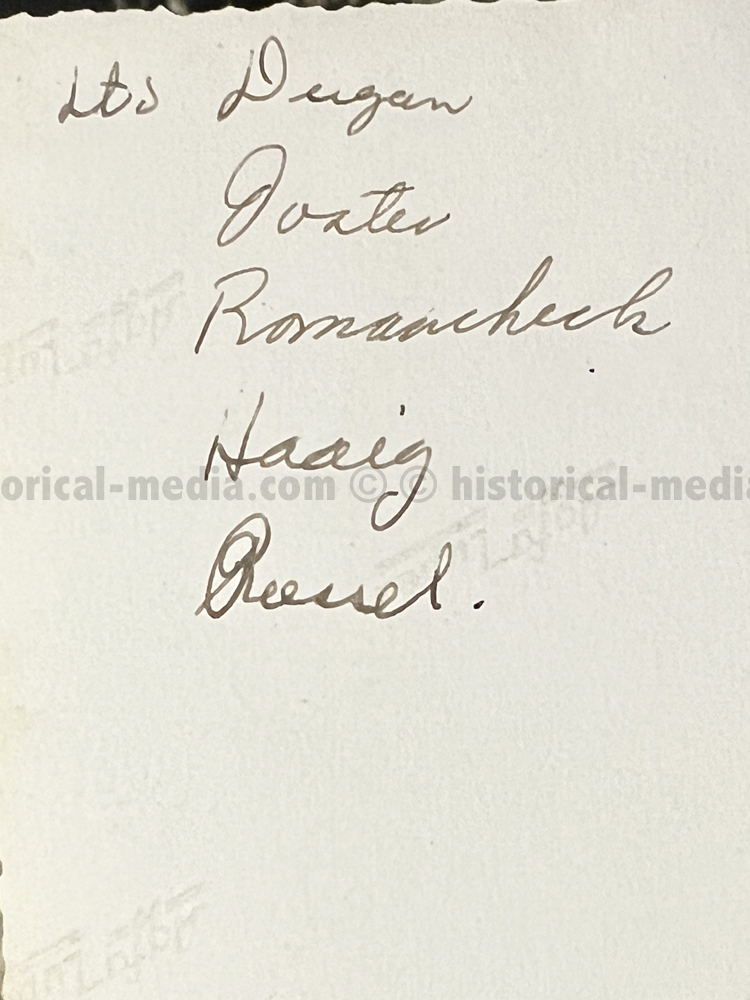 Lts Dugan
Foster
Romancheck
Haaig
orical-media.com © © historical-media
Russel.